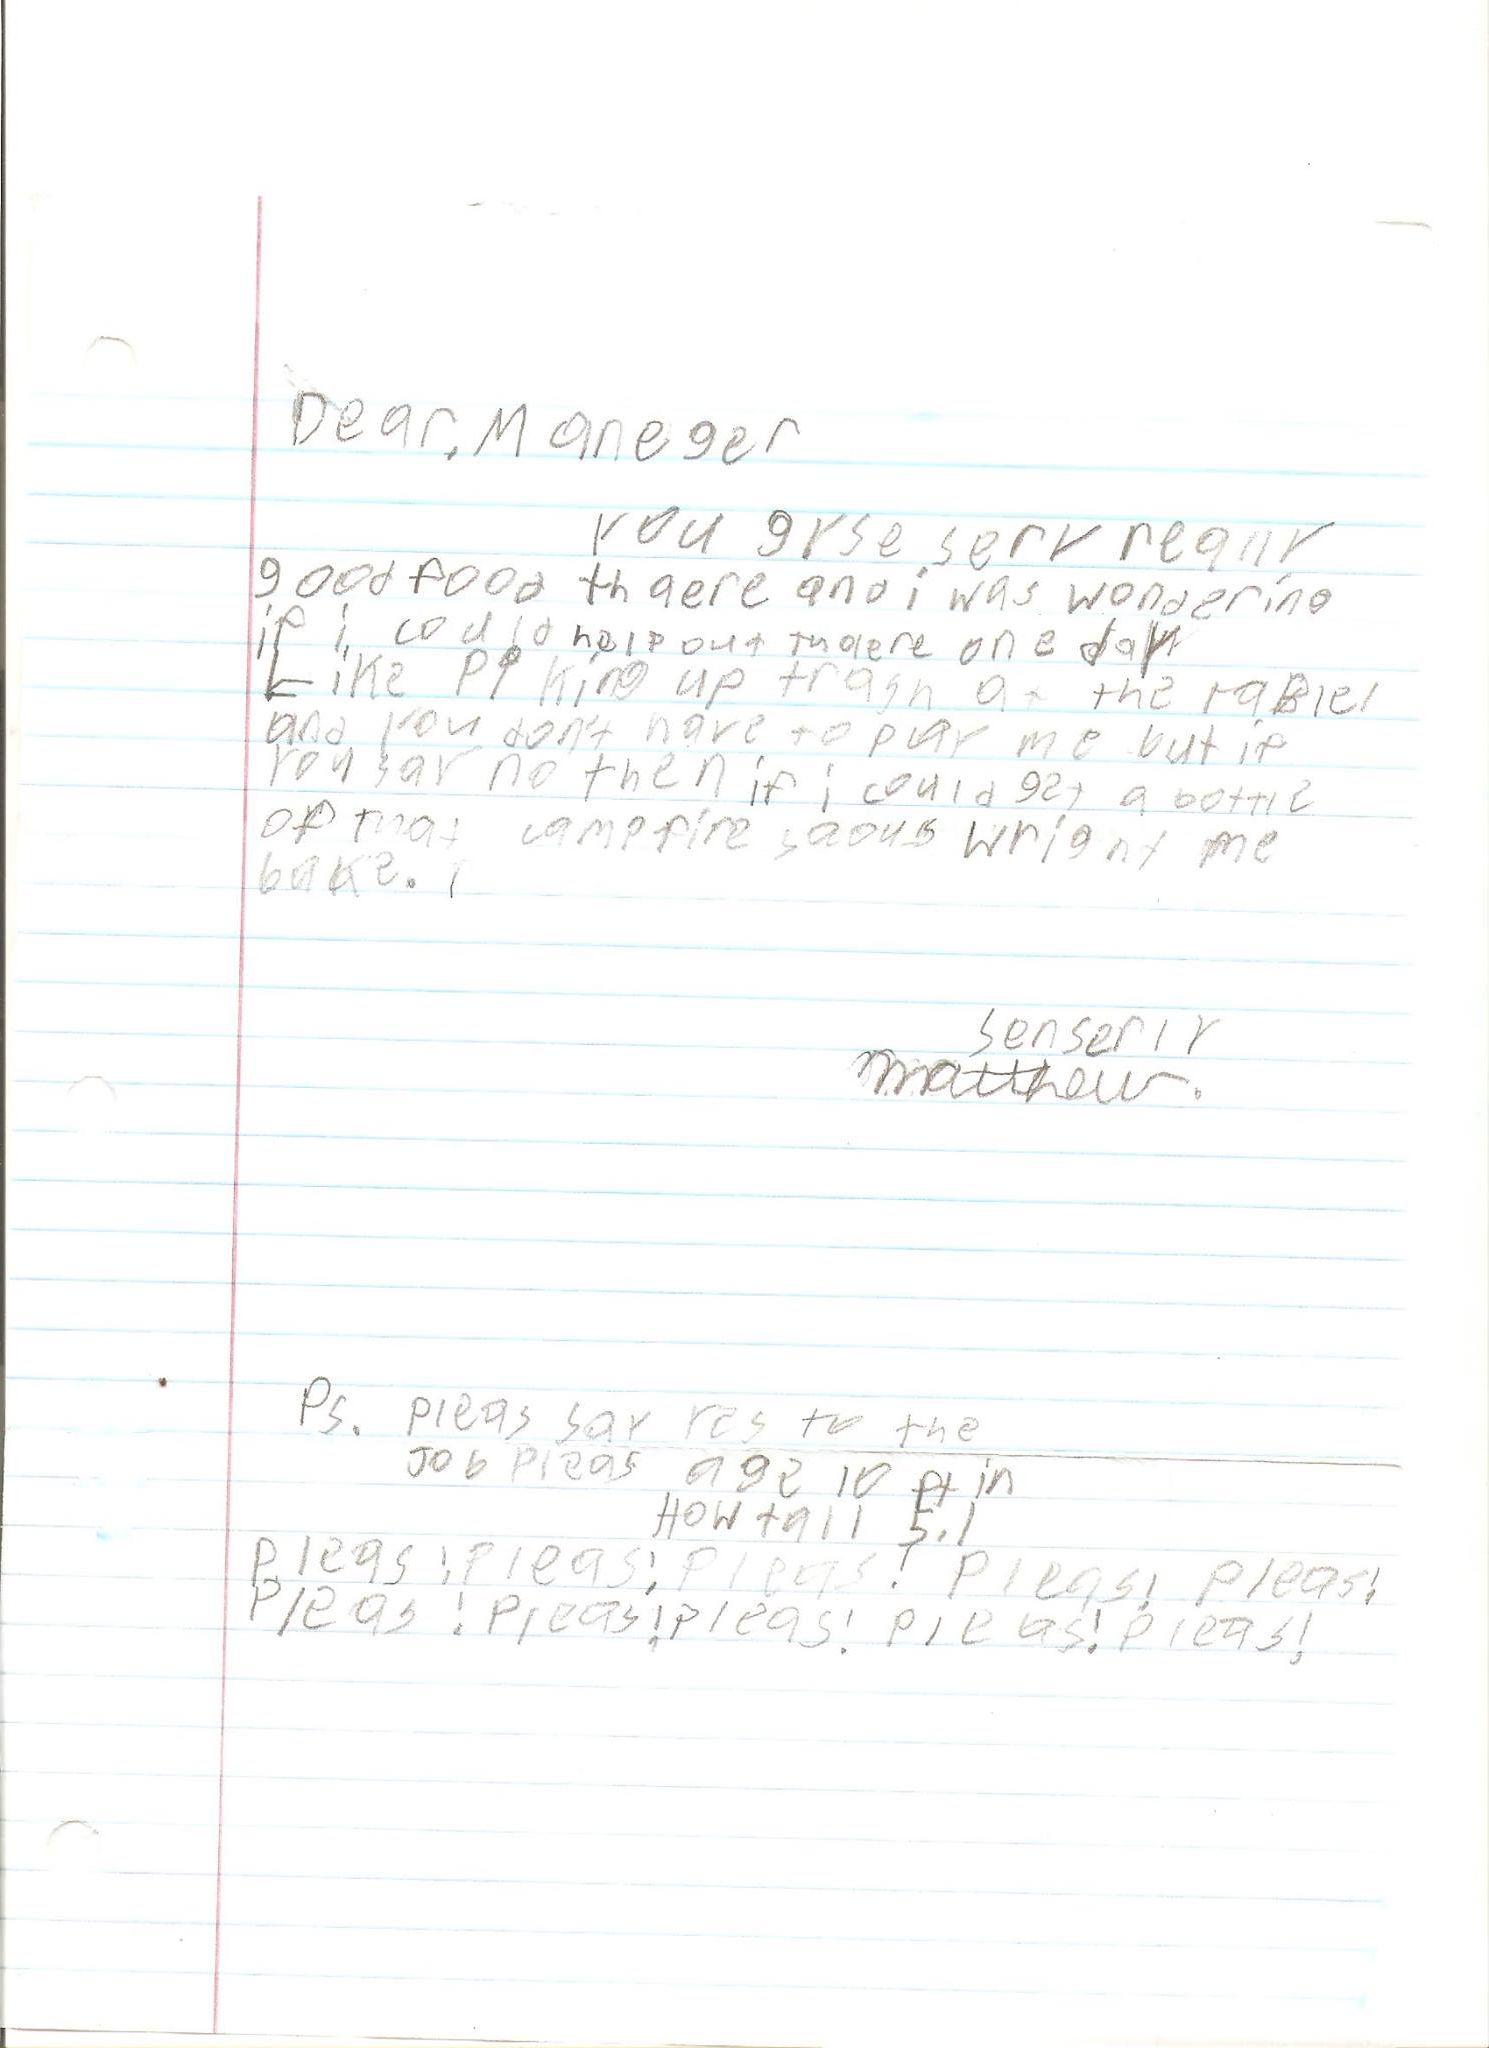 Dear, Maneger
you gyse serv realy
good food thaere and i was wondering
if i could help out thaere one day
Like piking up trash at the tablel
and you don't have to pay me but if
you say no then if i could get a bottle
of that campfire saous wright me
bake.
senserly
matthew.
Ps. pleas say yes to the
Job pleas age 10 ft in
How tall 5.1
pleas! pleas! pleas! pleas! pleas!
pleas! pleas! pleas! pleas! pleas!